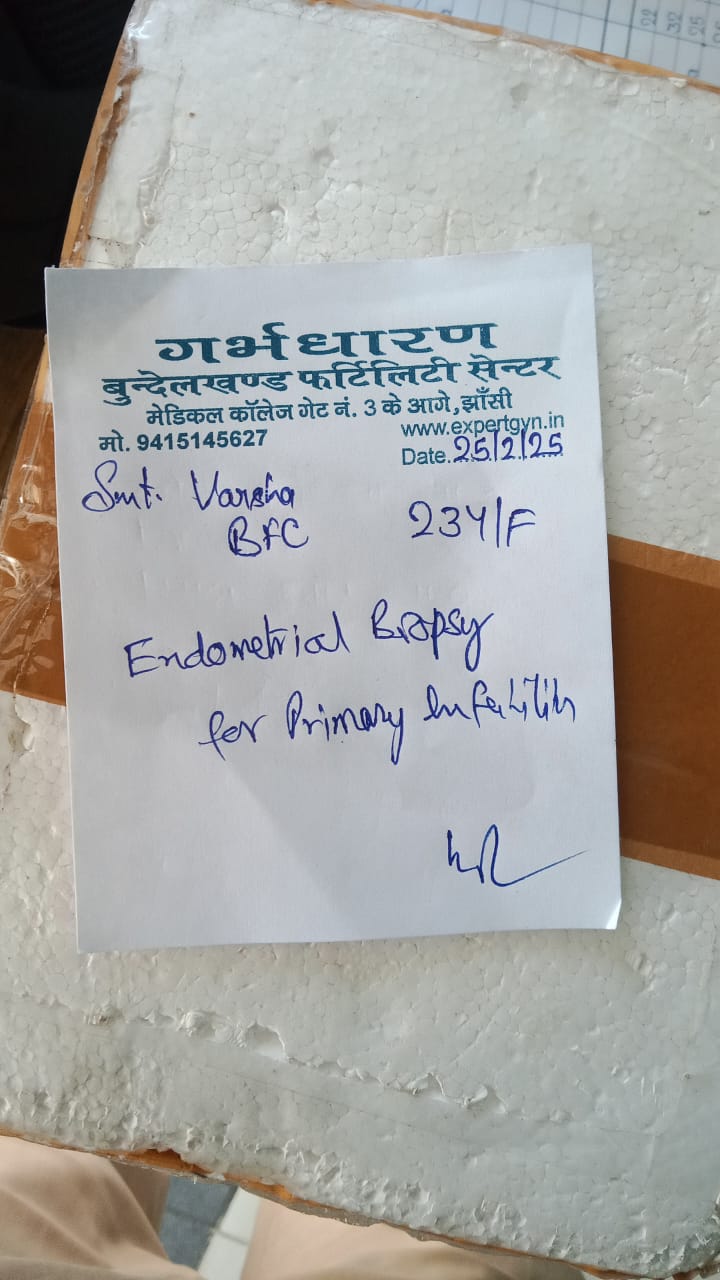 गर्भधारण
बुन्देलखण्ड फर्टिलिटी सेन्टर
मेडिकल कॉलेज गेट नं. 3 के आगे, झाँसी
मो. 9415145627 www.expertgyn.in
Date. 25/2/25
Smt. Varsha
BFC 23Y/F
Endometrial Biopsy
for Primary Infertility
22
32
25